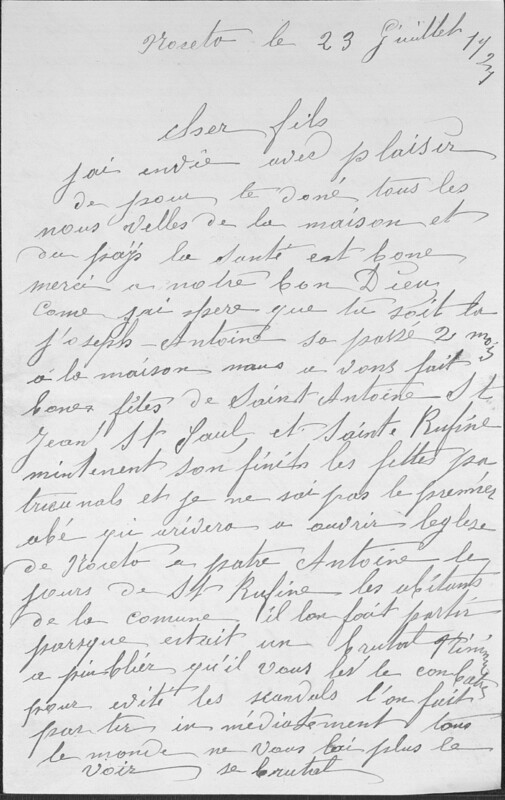 Noceto le 23 Juillet 1921
Cher fils
jai envie avec plaisir
de pour te doné tous les
nous velles de la maison et
du paÿs la santé est bone
merci a notre bon Dieu
Come jai spere que tu soit la
j'oseph-Antoine sa passé 2 mois
a la maison nous a vons fait
bones fêtes de Saint Antoine St
Jean St Paul, et Sainte Rufine
mintenent son finits les fettes pa
tricunals et je ne sai pas le premier
abé qui arivera a ouvrir leglese
de Noceto a patre Antoine le
jours de St Rufine les abitants
de la comune il lon fait partir
parsque estait un brutal
a piublier qu'il vous les le combatre
pour evité les scandals l'on fait
partir in médiatement tous
le monde ne vous lai plus le
voir se brutal